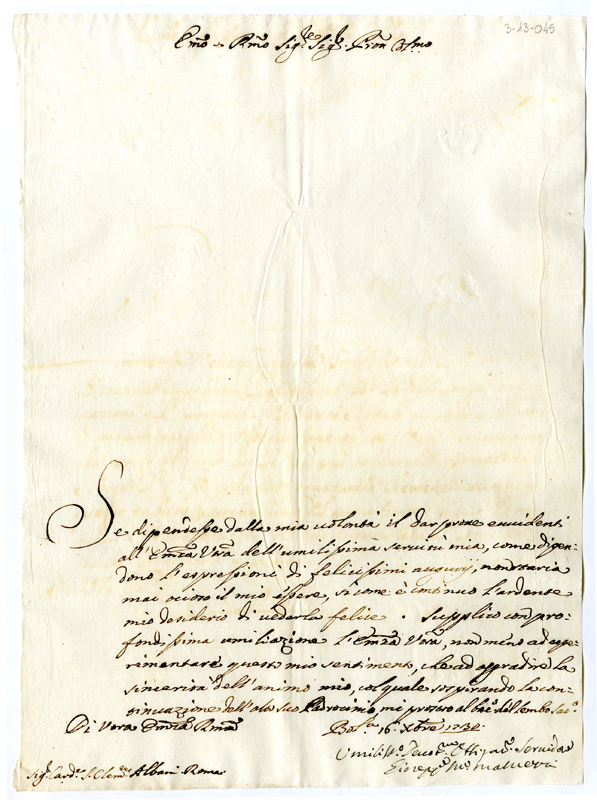 3-13-045
Emo e Rmo Sig.re Sig.r Pron Colmo
Se dipendesse dalla mia volontà il dar prove evvidenti
all'Emza Vra dell'umilissima servitù mia, come digen-
dono l'espressioni di felicissimi augurj, non staria
mai ocioso il mio essere, sicome è continuo l'ardente
mio desiderio di vederla felice. Supplico con pro-
fondissima umiliazione l'Emza Vra, non meno ad espe-
rimentare questo mio sentimento, che ad aggradire la
sincerità dell'animo mio, col quale sospirando la con-
tinuazione dell'alto suo Padrocinio mi prostro al bacio del lembo
Di Vora Emza Rma
16. Xbre 1730.
Umiliss.o Servidor
Sig. Card.e S. Clem.te Albani Roma